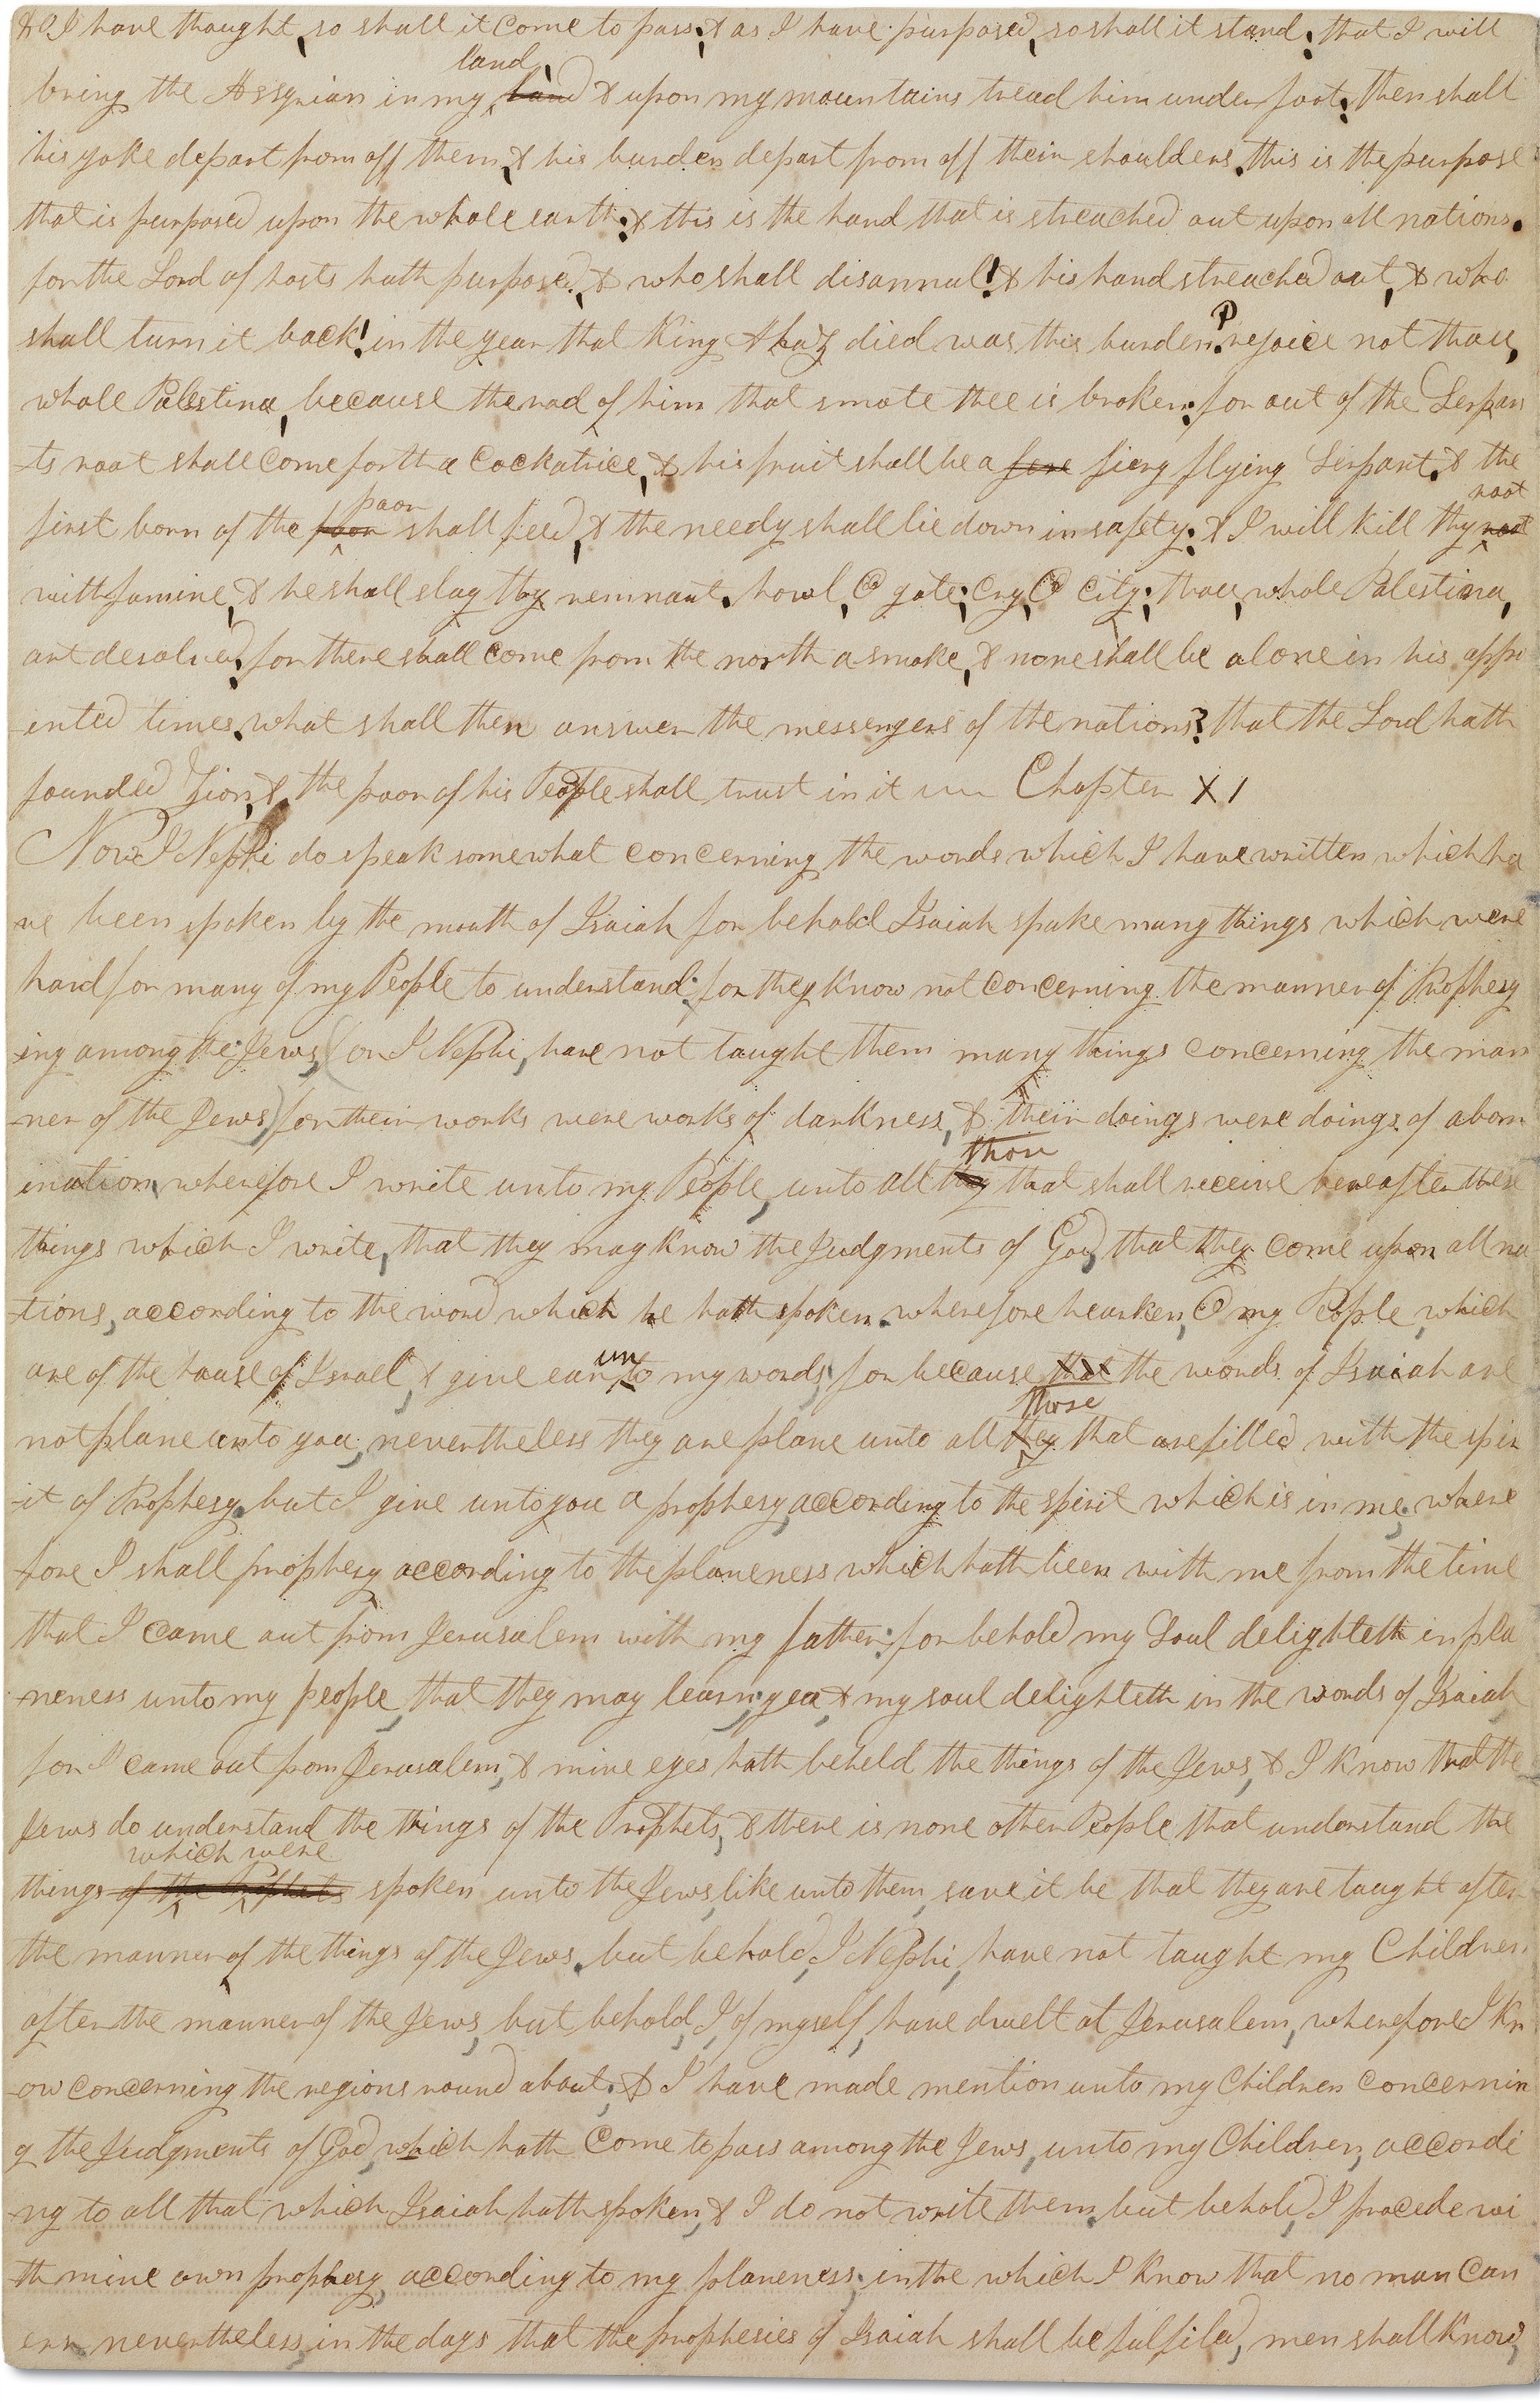 as I have thought, so shall it come to pass; & as I have purposed, so shall it stand; that I will
land,
bring the Assyrian in my land & upon my mountains tread him under foot; then shall
his yoke depart from off them, & his burden depart from off their shoulders. this is the purpose
that is purposed upon the whole earth; & this is the hand that is streached out upon all nations.
for the Lord of hosts hath purposed, & who shall disannul! & his hand streached out, & who
shall turn it back! in the year that King Ahaz died was this burden. P rejoice not thou,
whole Palestina, because the rod of him that smote thee is broken; for out of the Serpan
-ts root shall come forth a Cockatrice, & his fruit shall be a fere fiery flying Serpant. & the
poor root
first born of the poor shall feed, & the needy shall lie down in safety; & I will kill thy root
with famine, & he shall slay thy remnant. howl, O gate; cry, O City; thou, whole Palestina,
art desolved; for there shall come from the north a smoke, & none shall be alone in his appo
-inted times. what shall then answer the messengers of the nations? that the Lord hath
founded Zion, & the poor of his People shall trust in it Chapter XI
Now I Nephi do speak somewhat concerning the words which I have written which ha
-ve been spoken by the mouth of Isaiah for behold Isaiah spake many things which were
hard for many of my People to understand; for they know not concerning the manner of Prophesy
-ing among the Jews, (for I Nephi, have not taught them many things concerning the man
-ner of the Jews) for their works were works of darkness, & their doings were doings of abom
those
ination, wherefore I write unto my People, unto all they that shall receive hereafter these
things which I write, that they may know the Judgments of God, that they come upon all na
-tions, according to the word which he hath spoken. wherefore hearken, O my People, which
un
are of the house of Israel, & give ear to my words; for because that the words of Isaiah are
those
not plane unto you, nevertheless they are plane unto all they that are filled with the spir
-it of Prophesy. but I give unto you a prophesy, according to the spirit which is in me; where
-fore I shall prophesy according to the planeness which hath been with me from the time
that I came out from Jerusalem with my father; for behold my Soul delighteth in pla
-neness unto my people, that they may learn; yea, & my soul delighteth in the words of Isaiah
for I came out from Jerusalem, & mine eyes hath beheld the things of the Jews, & I know that the
Jews do understand the things of the Prophets, & there is none other People that understand the
which were
things of the Prophets spoken unto the Jews, like unto them, save it be that they are taught after
the manner of the things of the Jews. but behold, I Nephi, have not taught my Children
after the manner of the Jews, but behold, I, of myself, have dwelt at Jerusalem, wherefore I kn
-ow concerning the regions round about; & I have made mention unto my Children concernin
g the Judgments of God, which hath Come to pass among the Jews, unto my Children, accordi
-ng to all that which Isaiah hath spoken, & I do not write them. but behold, I procede wi
-th mine own prophesy, according to my planeness; in the which I know that no man Can
err nevertheless, in the days that the prophesies of Isaiah shall be fulfiled, men shall know,